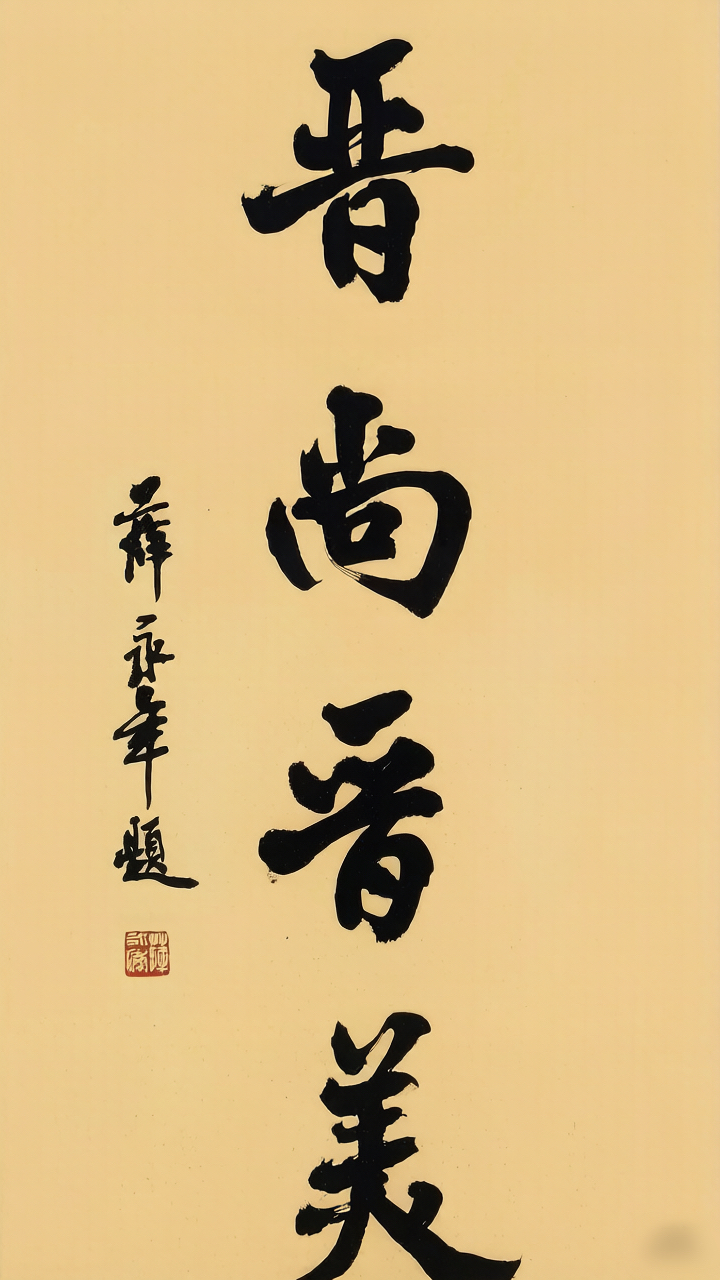 晋尚晋美
薛永年題